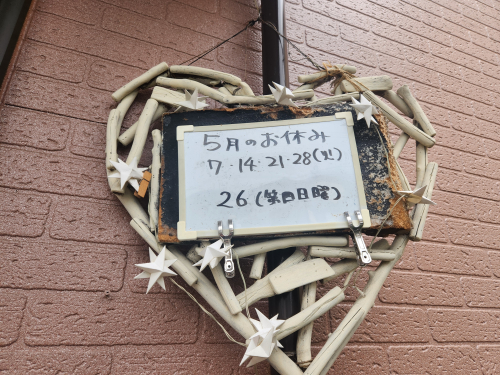 5月のお休み
7・14・21・28(火)
26(第四日曜)